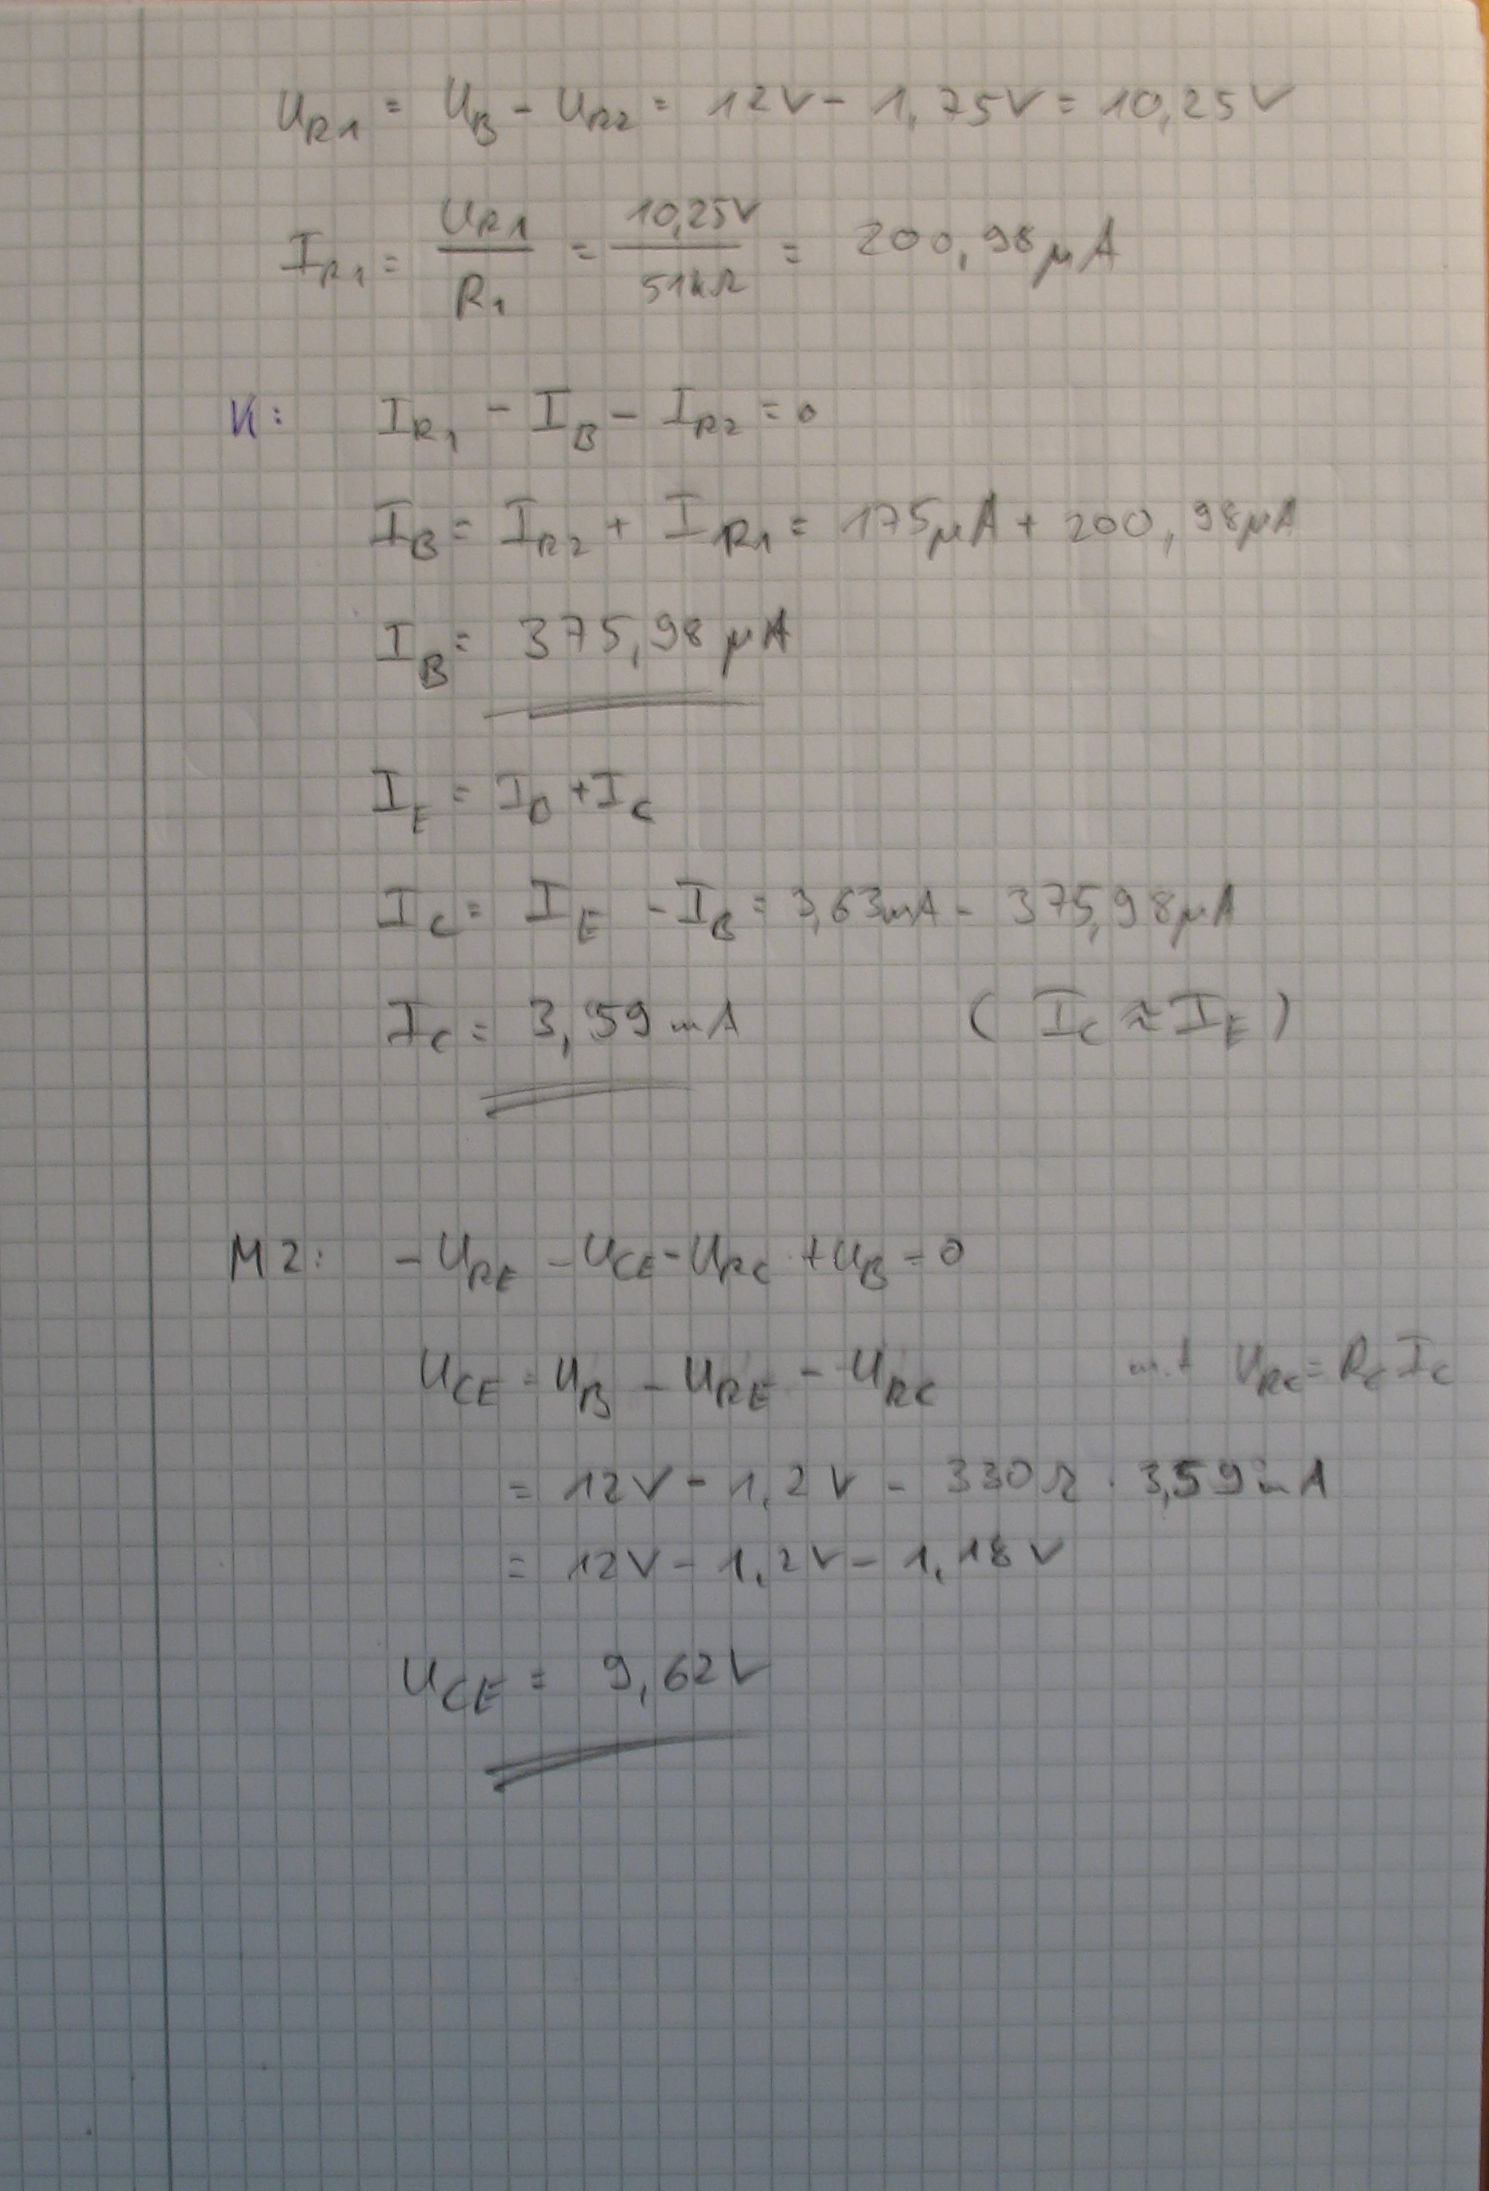 U_R1 = U_B - U_R2 = 12V - 1,75V = 10,25V
I_R1 = U_R1 / R_1 = 10,25V / 51kΩ = 200,98µA
K: I_R1 - I_B - I_R2 = 0
I_B = I_R2 + I_R1 = 175µA + 200,98µA
I_B = 375,98µA
I_E = I_B + I_C
I_C = I_E - I_B = 3,63mA - 375,98µA
I_C = 3,59mA (I_C ≈ I_E)
M2: -U_RE - U_CE - U_RC + U_B = 0
U_CE = U_B - U_RE - U_RC mit U_RC = R_C I_C
= 12V - 1,2V - 330Ω · 3,59mA
= 12V - 1,2V - 1,18V
U_CE = 9,62V